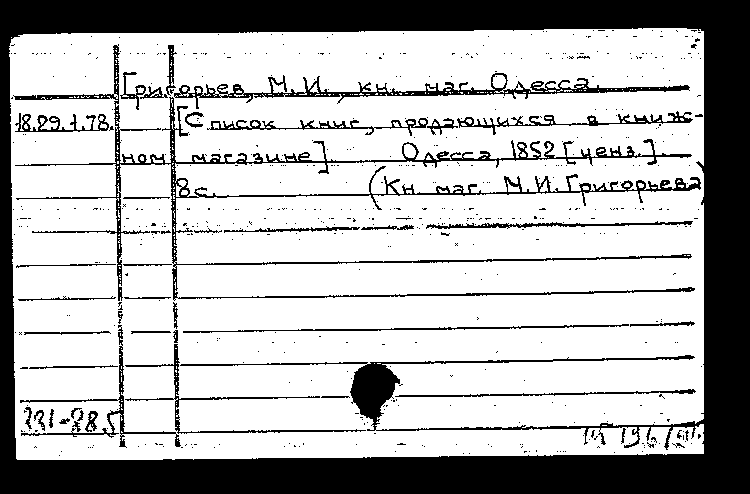 Григорьев, М.И., кн. маг. Одесса.
18.29.1.78. [Список книг, продающихся в книж-
ном магазине]. Одесса, 1852 [ценз.].
8с. (Кн. маг. М.И.Григорьева)